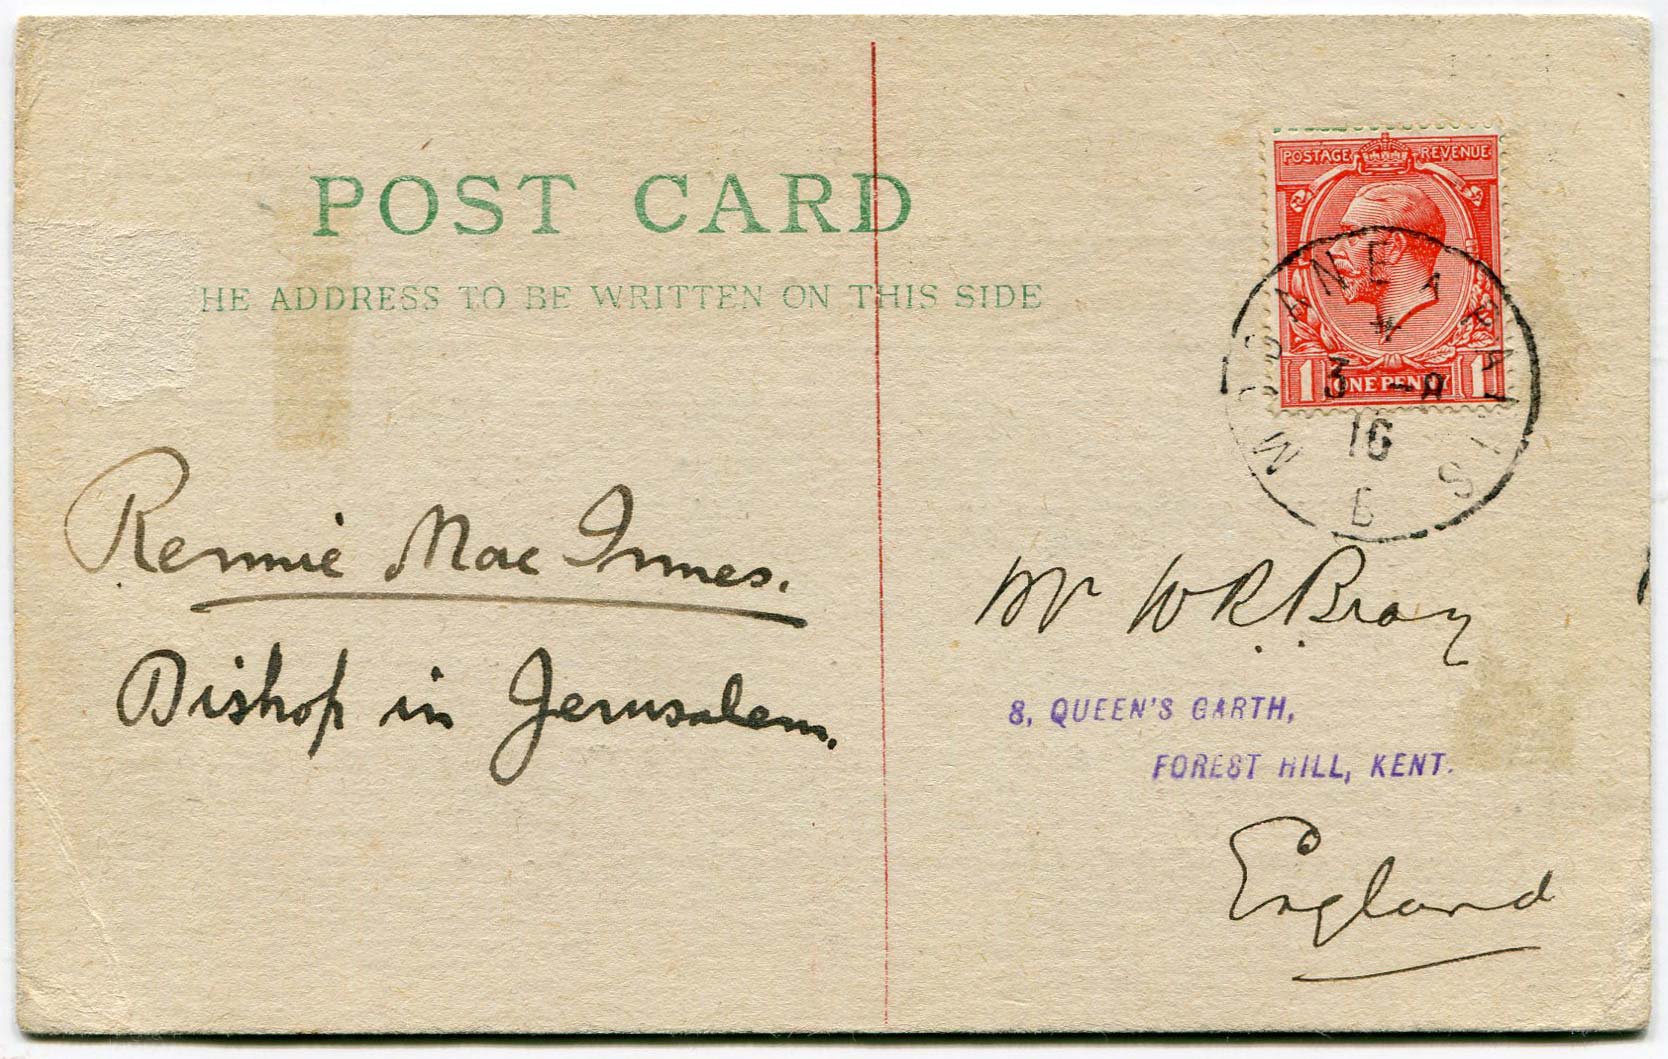 POST CARD
HE ADDRESS TO BE WRITTEN ON THIS SIDE
POSTAGE REVENUE
1 ONE PENNY 1
3
16
Rennie Mac Innes.
Bishop in Jerusalem.
Mr W R. Bray
8, QUEEN'S GARTH,
FOREST HILL, KENT.
England